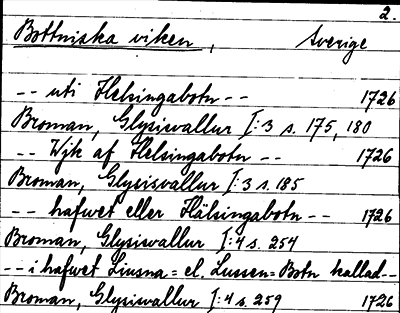 2.
Bottniska viken, Sverige
-- uti Helsingabotn -- 1726
Broman, Glysisvallur I:3 s. 175, 180
-- Wjk af Helsingabotn -- 1726
Broman, Glysisvallur I:3 s. 185
-- hafwet eller Hälsingabotn -- 1726
Broman, Glysisvallur I:4 s. 254
-- i hafwet Liusna= el. Lussen=Botn kallad --
Broman, Glysisvallur I:4 s. 259 1726